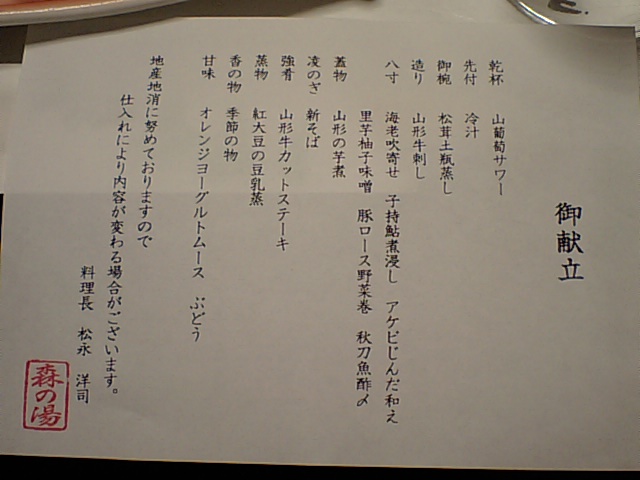 御献立
乾杯　山葡萄サワー
先付　冷汁
御椀　松茸土瓶蒸し
造り　山形牛刺し
八寸　海老吹寄せ　子持鮎煮浸し　アケビじんだ和え
里芋柚子味噌　豚ロース野菜巻　秋刀魚酢〆
蓋物　山形の芋煮
凌のぎ　新そば
強肴　山形牛カットステーキ
蒸物　紅大豆の豆乳蒸
香の物　季節の物
甘味　オレンジヨーグルトムース　ぶどう
地産地消に努めておりますので
仕入れにより内容が変わる場合がございます。
料理長　松永　洋司
森の湯